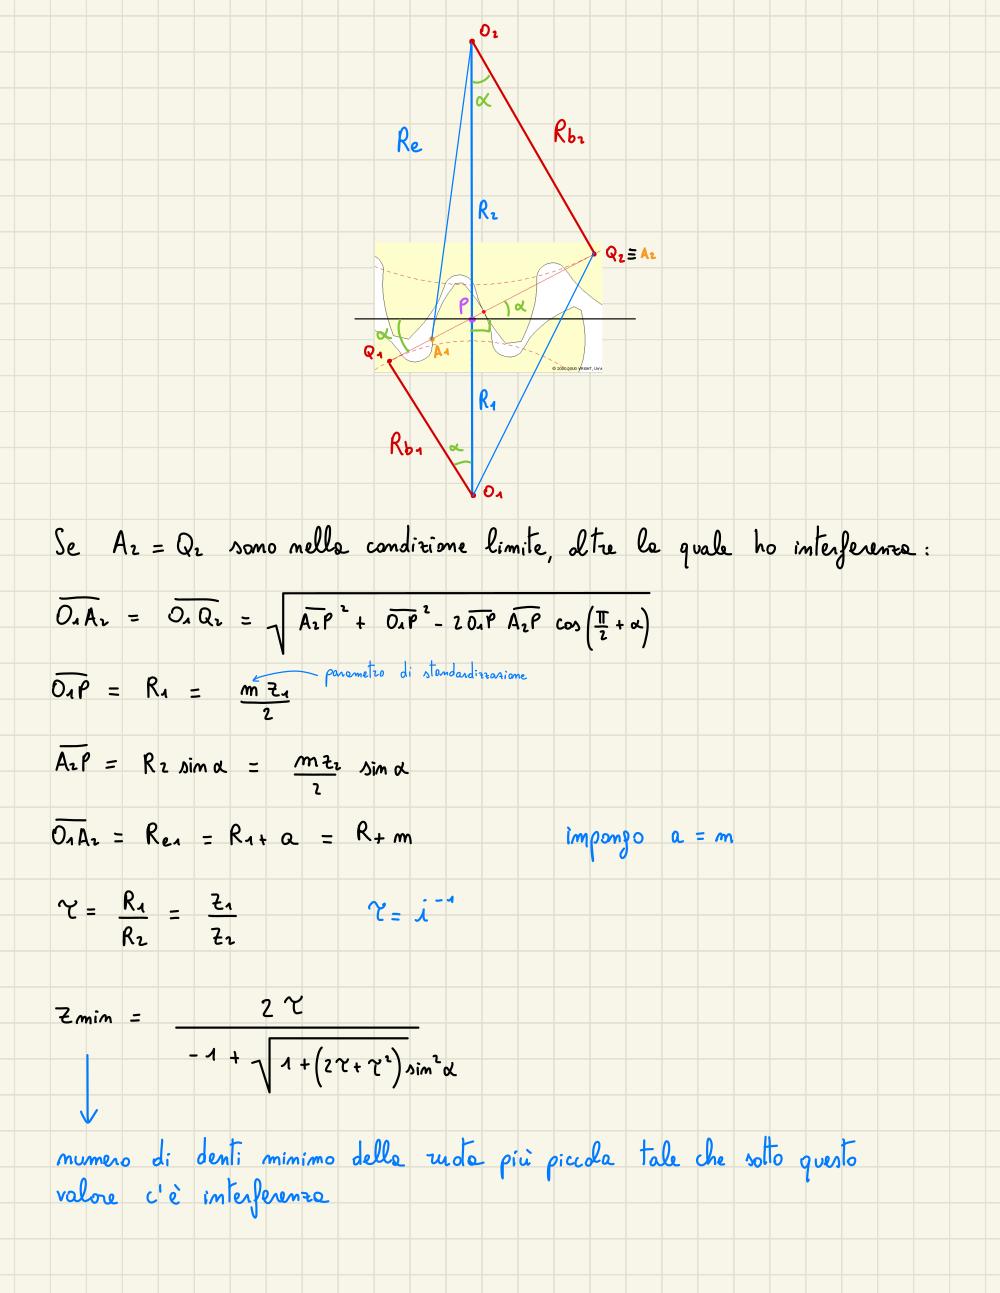 O₂
α
Re
Rb₂
R₂
Q₂ ≡ A₂
P
α
α
Q₁
A₁
R₁
Rb₁
α
O₁
Se A₂ = Q₂ sono nella condizione limite, oltre la quale ho interferenza :
O₁A₂ = O₁Q₂ = √(A₂P² + O₁P² - 2 O₁P A₂P cos(π/2 + α))
parametro di standardizzazione
O₁P = R₁ = m z₁ / 2
A₂P = R₂ sin α = m z₂ / 2 sin α
O₁A₂ = Re₁ = R₁ + a = R + m impongo a = m
τ = R₁ / R₂ = z₁ / z₂ τ = i⁻¹
zmin = 2 τ / (-1 + √(1 + (2τ + τ²)) sin²α)
numero di denti minimo della ruota più piccola tale che sotto questo
valore c'è interferenza